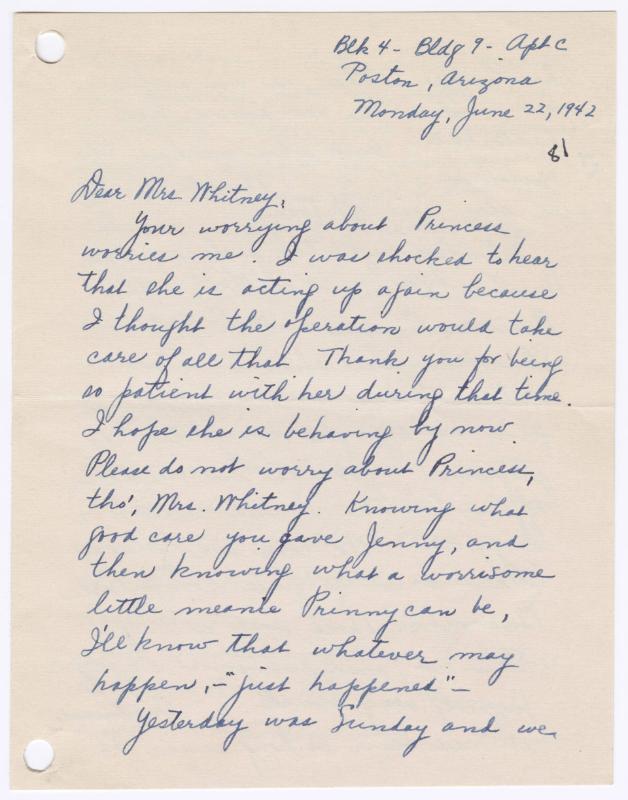 Blk 4 - Bldg 9 - Apt C
Poston, Arizona
Monday, June 22, 1942
81
Dear Mrs. Whitney,
Your worrying about Princess
worries me. I was shocked to hear
that she is acting up again because
I thought the operation would take
care of all that. Thank you for being
so patient with her during that time.
I hope she is behaving by now.
Please do not worry about Princess,
tho', Mrs. Whitney. Knowing what
good care you gave Jenny, and
then knowing what a worrisome
little meanie Prinny can be,
I'll know that whatever may
happen, - "just happened" -
Yesterday was Sunday and we